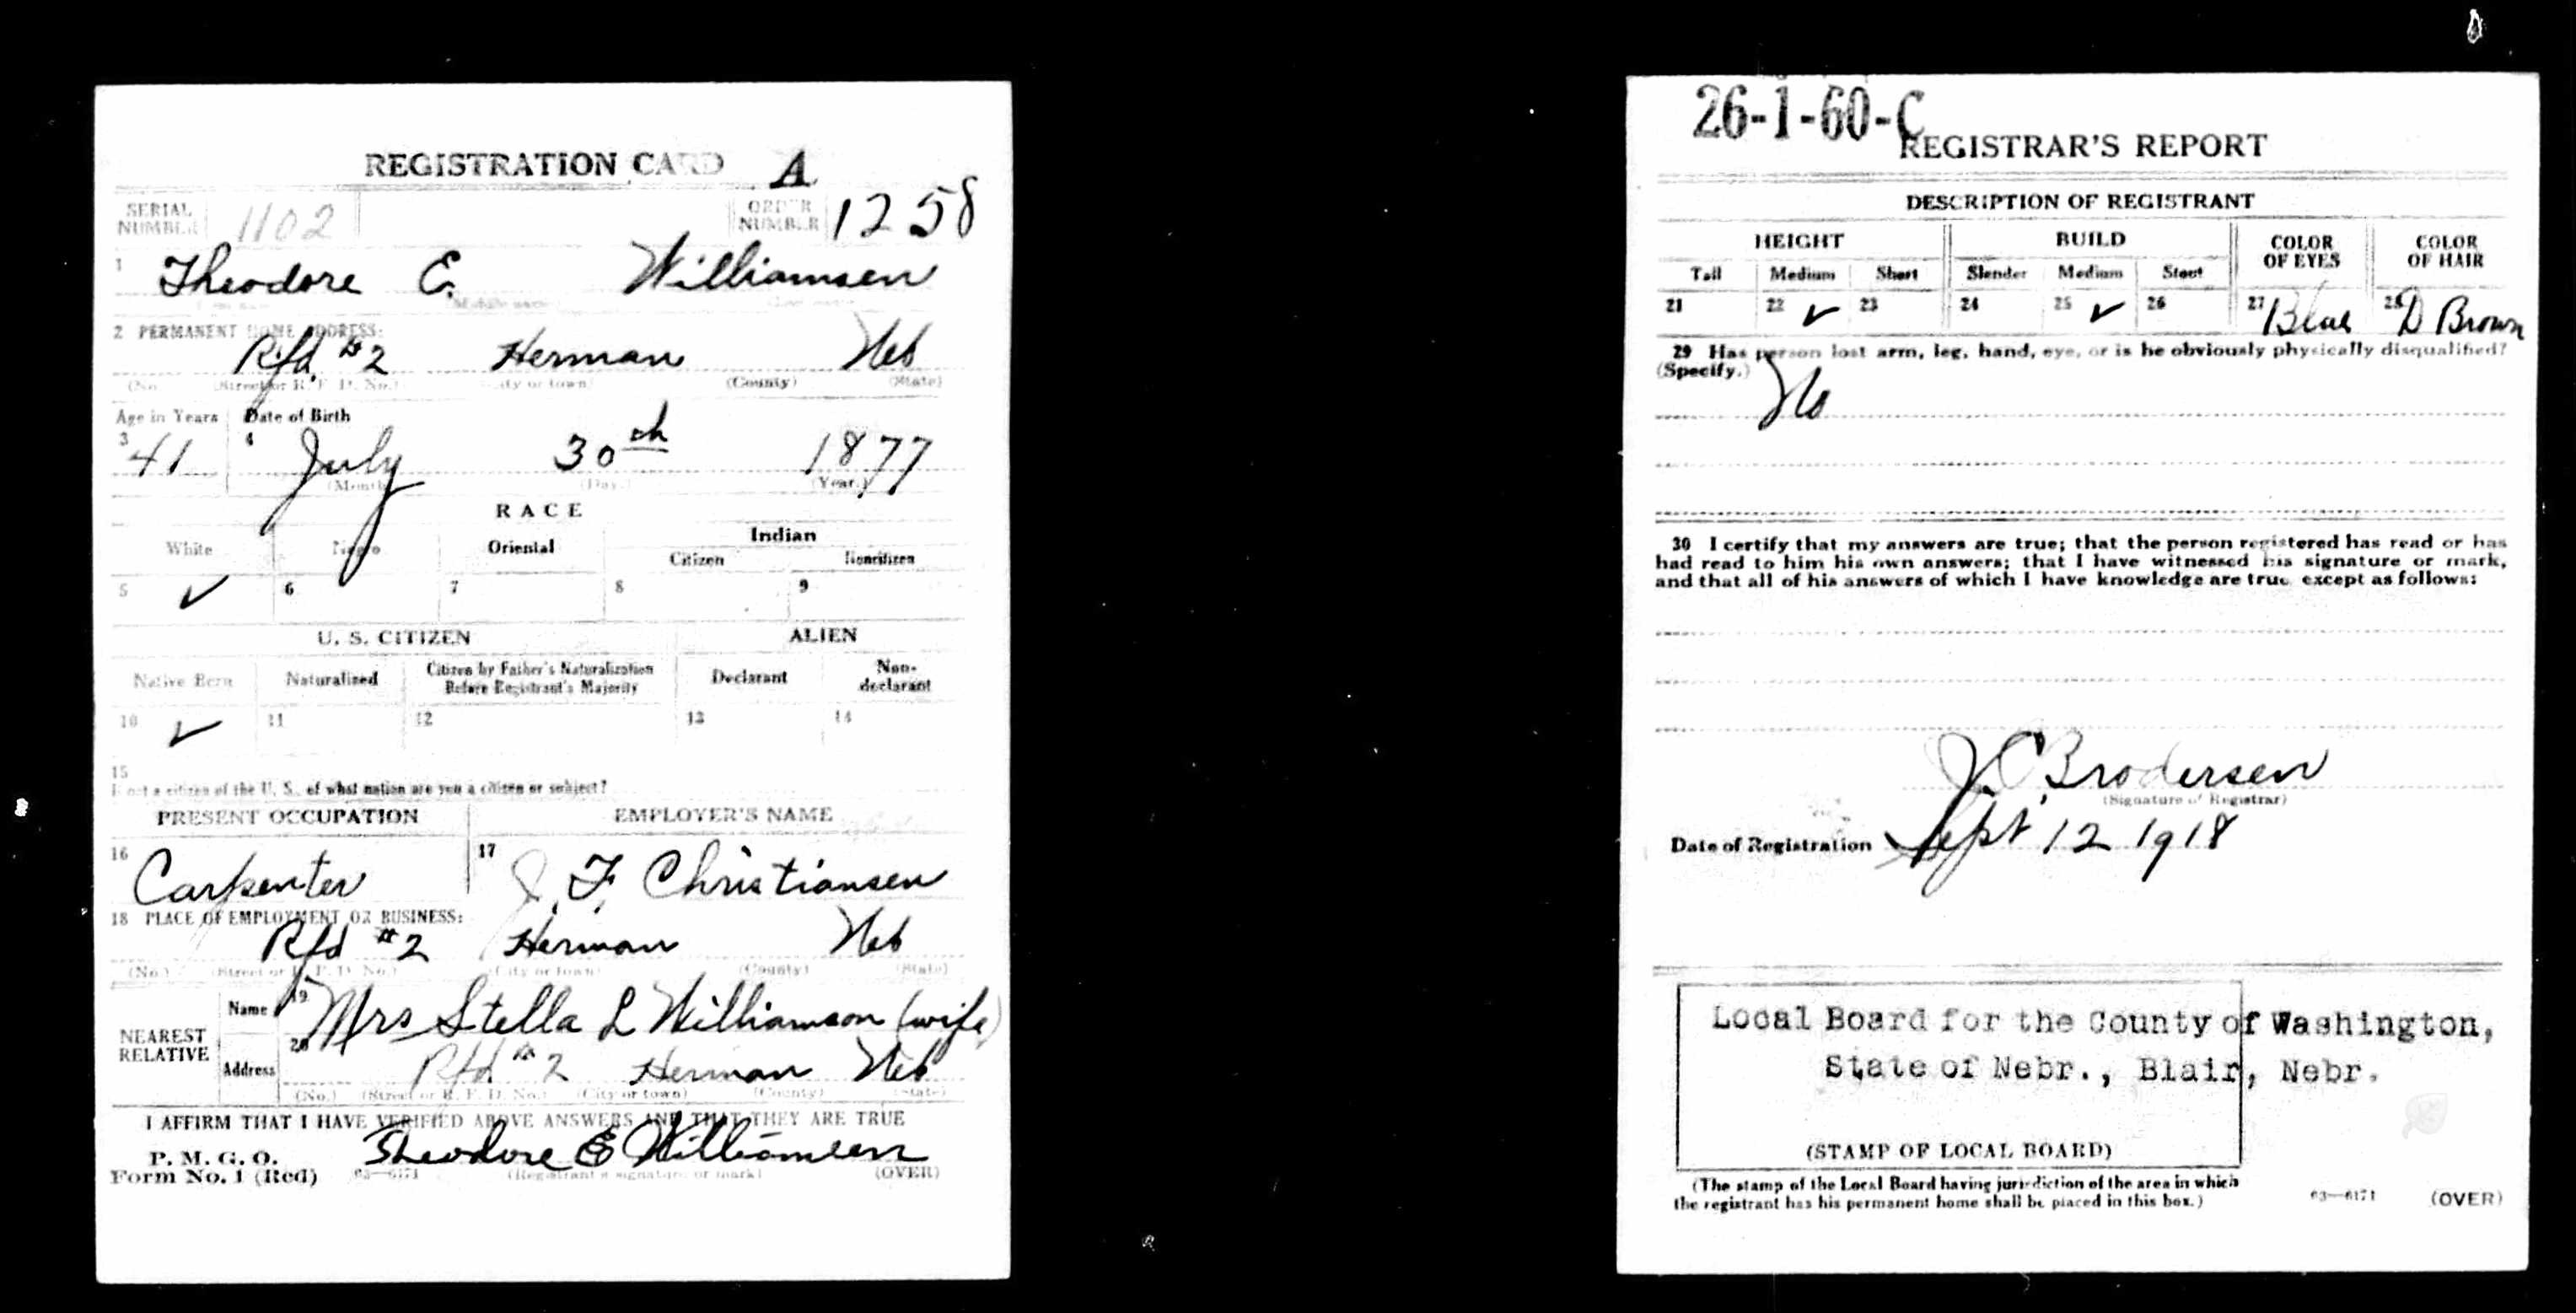 REGISTRATION CARD A
SERIAL NUMBER 1102 ORDER NUMBER 1258
1 Theodore E. Williamsen
Middle name
2 PERMANENT HOME ADDRESS:
Rfd #2 Herman Neb
(No.) (Street or R. F. D. No.) (City or town) (County) (State)
Age in Years Date of Birth
3 41 4 July 30th 1877
(Month) (Day.) (Year.)
RACE
White Negro Oriental Indian
Citizen Noncitizen
5 ✓ 6 7 8 9
U. S. CITIZEN ALIEN
Native Born Naturalized Citizen by Father's Naturalization Before Registrant's Majority Declarant Non-declarant
10 ✓ 11 12 13 14
15
If not a citizen of the U. S., of what nation are you a citizen or subject?
PRESENT OCCUPATION EMPLOYER'S NAME
16 Carpenter 17 J. F. Christiansen
18 PLACE OF EMPLOYMENT OR BUSINESS:
Rfd #2 Herman Neb
(No.) (Street or R. F. D. No.) (City or town) (County) (State)
NEAREST RELATIVE
Name 19 Mrs Stella L Williamson (wife)
Address 20 Rfd #2 Herman Neb
(No.) (Street or R. F. D. No.) (City or town) (County) (State)
I AFFIRM THAT I HAVE VERIFIED ABOVE ANSWERS AND THAT THEY ARE TRUE
P. M. G. O.
Form No. 1 (Red) 03—6171 Theodore E Williamsen
(Registrant's signature or mark) (OVER)
26-1-60-C
REGISTRAR'S REPORT
DESCRIPTION OF REGISTRANT
HEIGHT BUILD COLOR OF EYES COLOR OF HAIR
Tall Medium Short Slender Medium Stout
21 22 ✓ 23 24 25 ✓ 26 27 Blue 28 D Brown
29 Has person lost arm, leg, hand, eye, or is he obviously physically disqualified?
(Specify.) No
30 I certify that my answers are true; that the person registered has read or has
had read to him his own answers; that I have witnessed his signature or mark,
and that all of his answers of which I have knowledge are true, except as follows:
J. C. Brodersen
(Signature of Registrar)
Date of Registration Sept 12 1918
Local Board for the County of Washington,
State of Nebr., Blair, Nebr.
(STAMP OF LOCAL BOARD)
(The stamp of the Local Board having jurisdiction of the area in which
the registrant has his permanent home shall be placed in this box.)
03—6171 (OVER)